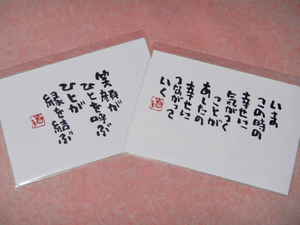 笑顔が
ひとを呼ぶ
ひとが
縁を結ぶ
道
いま
この時の
幸せに
気がつく
ことが
あしたの
幸せに
つながって
いく
道